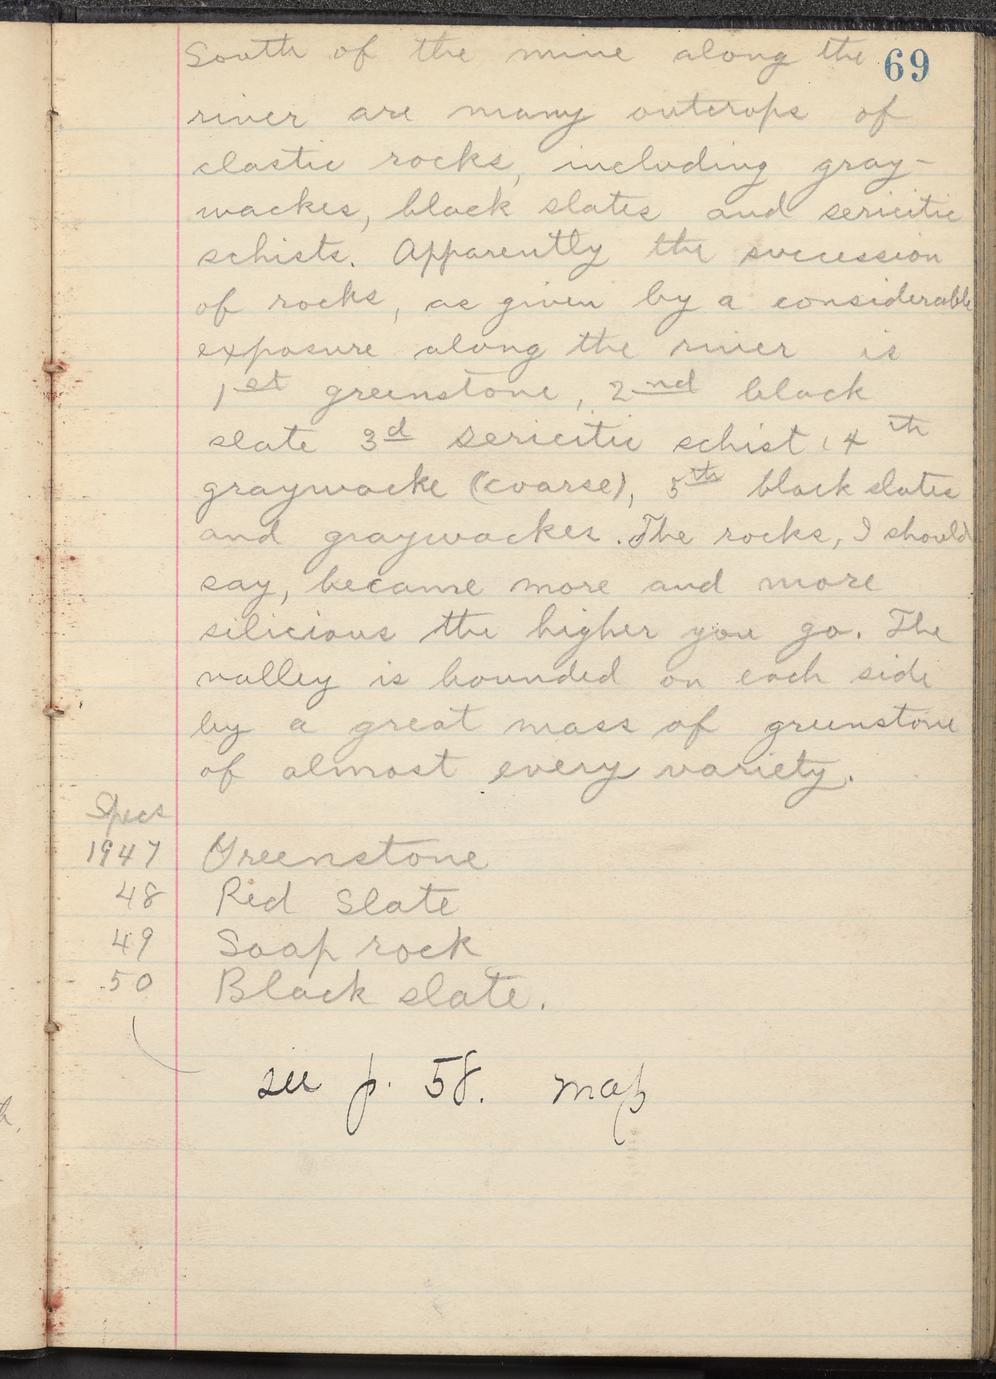 69
South of the mine along the
river are many outcrops of
clastic rocks, including gray-
wackes, black slates and sericitic
schists. Apparently the succession
of rocks, as given by a considerable
exposure along the river is
1st greenstone, 2nd black
slate 3d sericitic schist, 4th
graywacke (coarse), 5th black slates
and graywackes. The rocks, I should
say, became more and more
silicious the higher you go. The
valley is bounded on each side
by a great mass of greenstone
of almost every variety.
Specs
1947 Greenstone
48 Red Slate
49 Soap rock
50 Black slate.
see p. 58. map